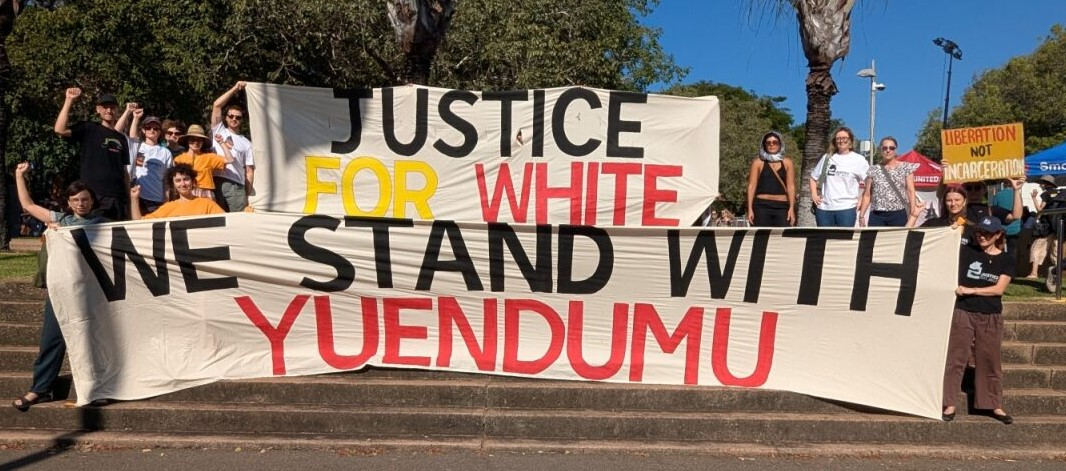 JUSTICE
FOR WHITE
WE STAND WITH
YUENDUMU
LIBERATION
NOT
INCARCERATION
UNITED